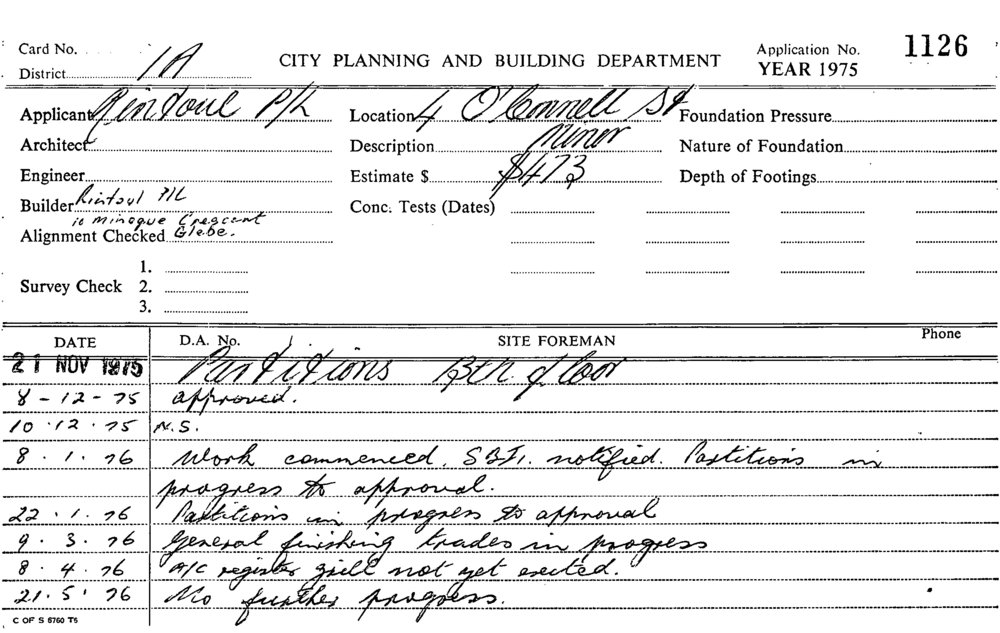 Card No.
District 1A
CITY PLANNING AND BUILDING DEPARTMENT
Application No. 1126
YEAR 1975
Applicant Rintoul P/L
Location 4 O'Connell St
Foundation Pressure
Architect
Description Minor
Nature of Foundation
Engineer
Estimate $ $473
Depth of Footings
Builder Rintoul P/L
10 Minogue Crescent
Conc. Tests (Dates)
Alignment Checked Glebe.
Survey Check
1.
2.
3.
DATE D.A. No. SITE FOREMAN Phone
21 NOV 1975 Partitions 13th floor
8-12-75 approved.
10.12.75 N.S.
8.1.76 Work commenced. notified. Partitions in
progress to approval.
22.1.76 Partitions in progress to approval
9.3.76 General finishing trades in progress
8.4.76 A/C register grill not yet erected.
21.5.76 No further progress.
C OF S 6760 T6